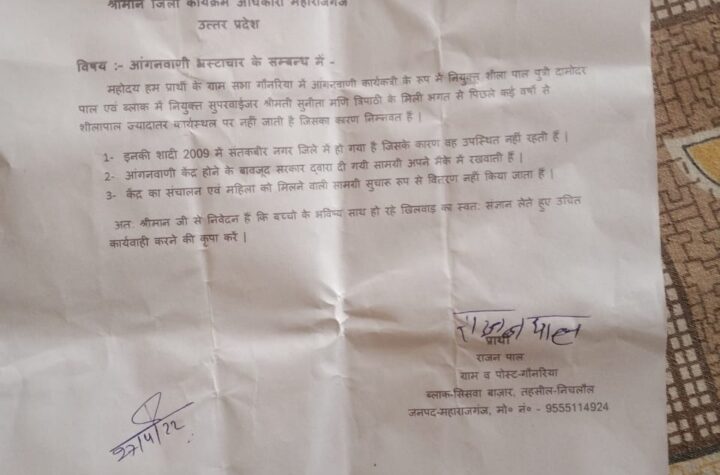 श्रीमान जिला कार्यक्रम अधिकारी महाराजगंज
उत्तर प्रदेश
विषय :- आंगनवाणी भ्रस्टाचार के सम्बन्ध में -
महोदय हम प्रार्थी के ग्राम सभा गौनरिया में आंगनवाणी कार्यकत्री के रूप में नियुक्त शीला पाल पुत्री दामोदर
पाल एवं ब्लाक में नियुक्त सुपरवाईजर श्रीमती सुनीता मणि त्रिपाठी के मिली भगत से पिछले कई वर्षो से
शीलापाल ज्यादातर कार्यस्थल पर नहीं जाती है जिसका कारण निम्नवत हैं |
1- इनकी शादी 2009 में संतकबीर नगर जिले में हो गया है जिसके कारण वह उपस्थित नहीं रहती हैं |
2- आंगनवाणी केंद्र होने के बावजूद सरकार दवारा दी गयी सामग्री अपने मैके में रखवाती हैं |
3- केंद्र का संचालन एवं महिला को मिलने वाली सामग्री सुचारू रूप से वितरण नहीं किया जाता हैं |
अत: श्रीमान जी से निवेदन हैं कि बच्चो के भविष्य साथ हो रहे खिलवाड़ का स्वत: संज्ञान लेते हुए उचित
कार्यवाही करने की कृपा करें |
राजन पाल
प्रार्थी
राजन पाल
ग्राम व पोस्ट-गौनरिया
ब्लाक-सिसवा बाज़ार, तहसील-निचलौल
जनपद-महाराजगंज, मो० नं० - 9555114924
27/4/22